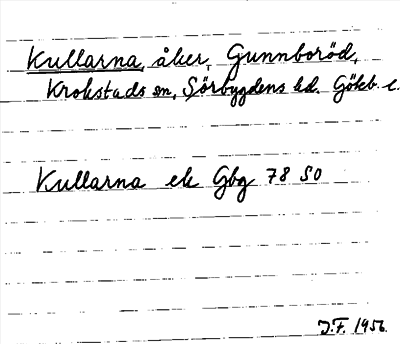 Kullarna, åker, Gunnboröd,
Krokstads sn, Sörbygdens hd. Göteb. l.
Kullarna ek Gbg 78 SO
J.F. 1956.